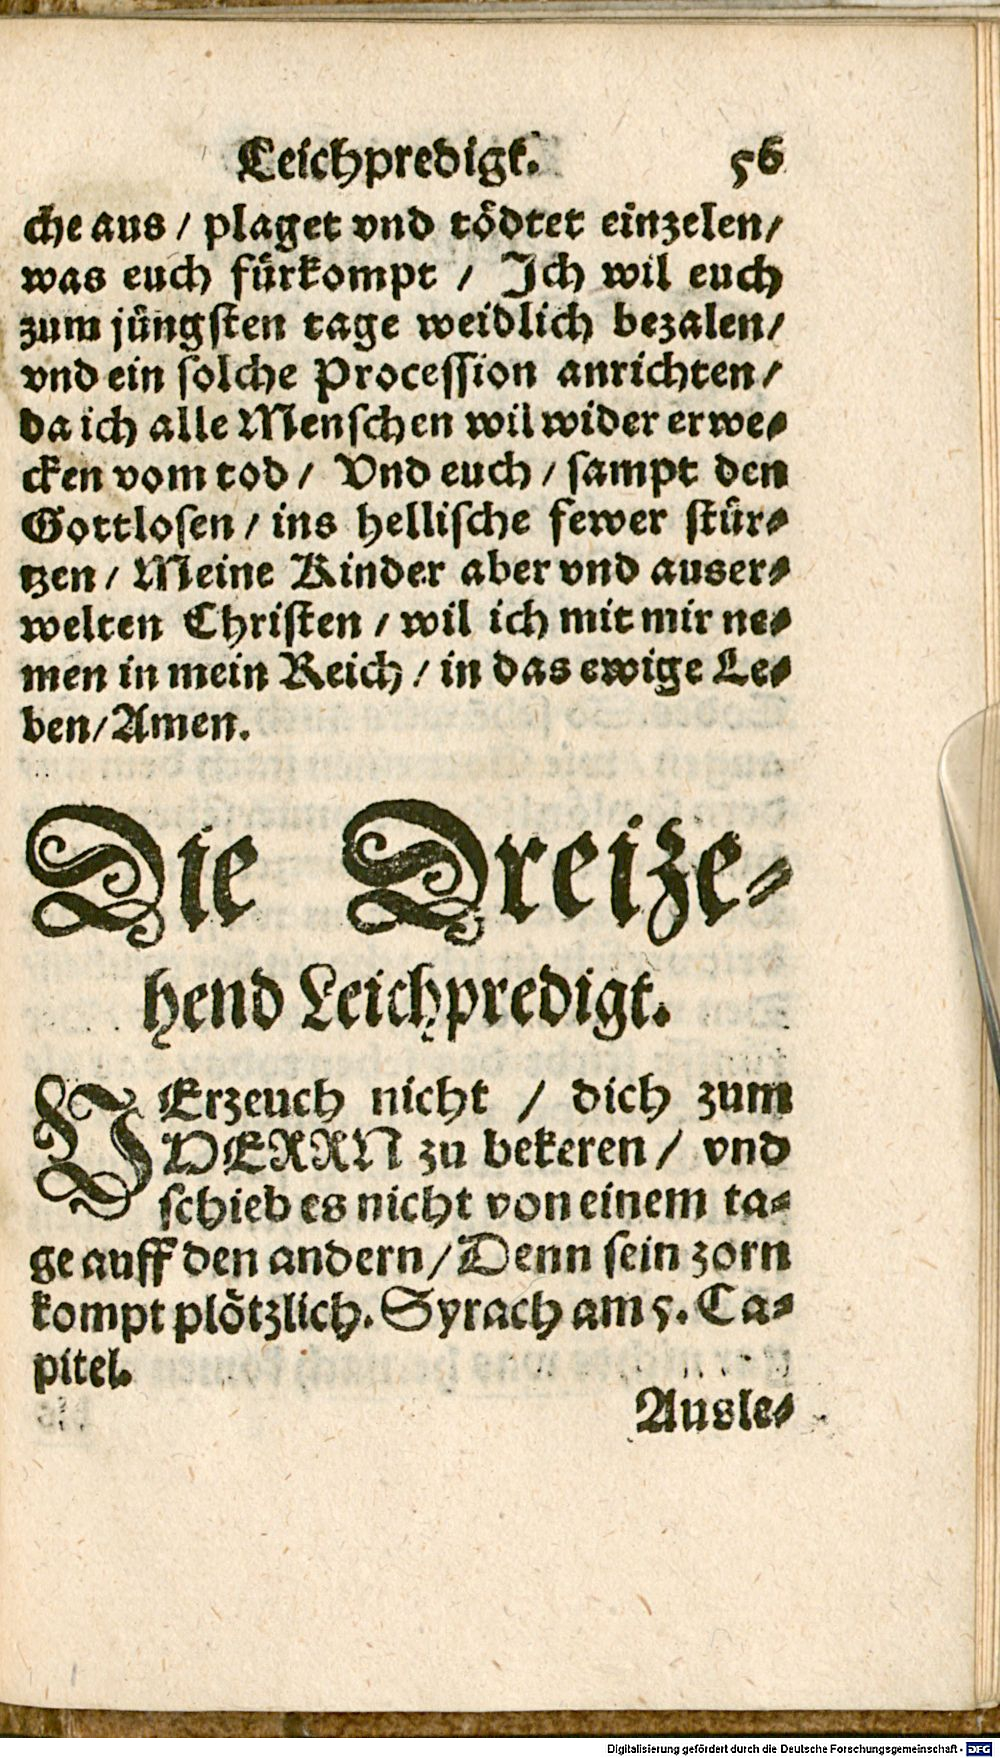 Leichpredigt. 56
che aus / plaget vnd tödtet einzelen /
was euch fürkompt / Ich wil euch
zum jüngſten tage weidlich bezalen /
vnd ein ſolche Proceſſion anrichten /
da ich alle Menſchen wil wider erwe⸗
cken vom tod / Vnd euch / ſampt den
Gottloſen / ins helliſche fewer ſtür⸗
tzen / Meine Kinder aber vnd auser⸗
welten Chriſten / wil ich mit mir ne⸗
men in mein Reich / in das ewige Le⸗
ben / Amen.
Die Dreize⸗
hend Leichpredigt.
VErzeuch nicht / dich zum
HERRN zu bekeren / vnd
ſchieb es nicht von einem ta⸗
ge auff den andern / Denn ſein zorn
kompt plötzlich. Syrach am 5. Ca⸗
pitel.
Ausle⸗
Digitalisierung gefördert durch die Deutsche Forschungsgemeinschaft - DFG